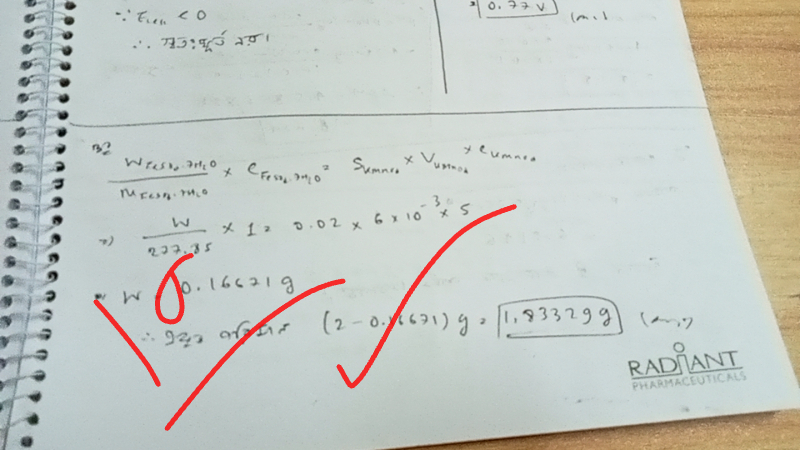 ∵ E_cell < 0
∴ স্বতঃস্ফূর্ত নয়।
0.77 V
(Ans)
W_FeSO₄.7H₂O / M_FeSO₄.7H₂O × e_FeSO₄.7H₂O = S_KMnO₄ × V_KMnO₄ × e_KMnO₄
⇒ W / 277.85 × 1 = 0.02 × 6 × 10⁻³ × 5
W 0.16671 g
∴ (2 - 0.16671) g = 1.83329 g (Ans)
RADIANT
PHARMACEUTICALS